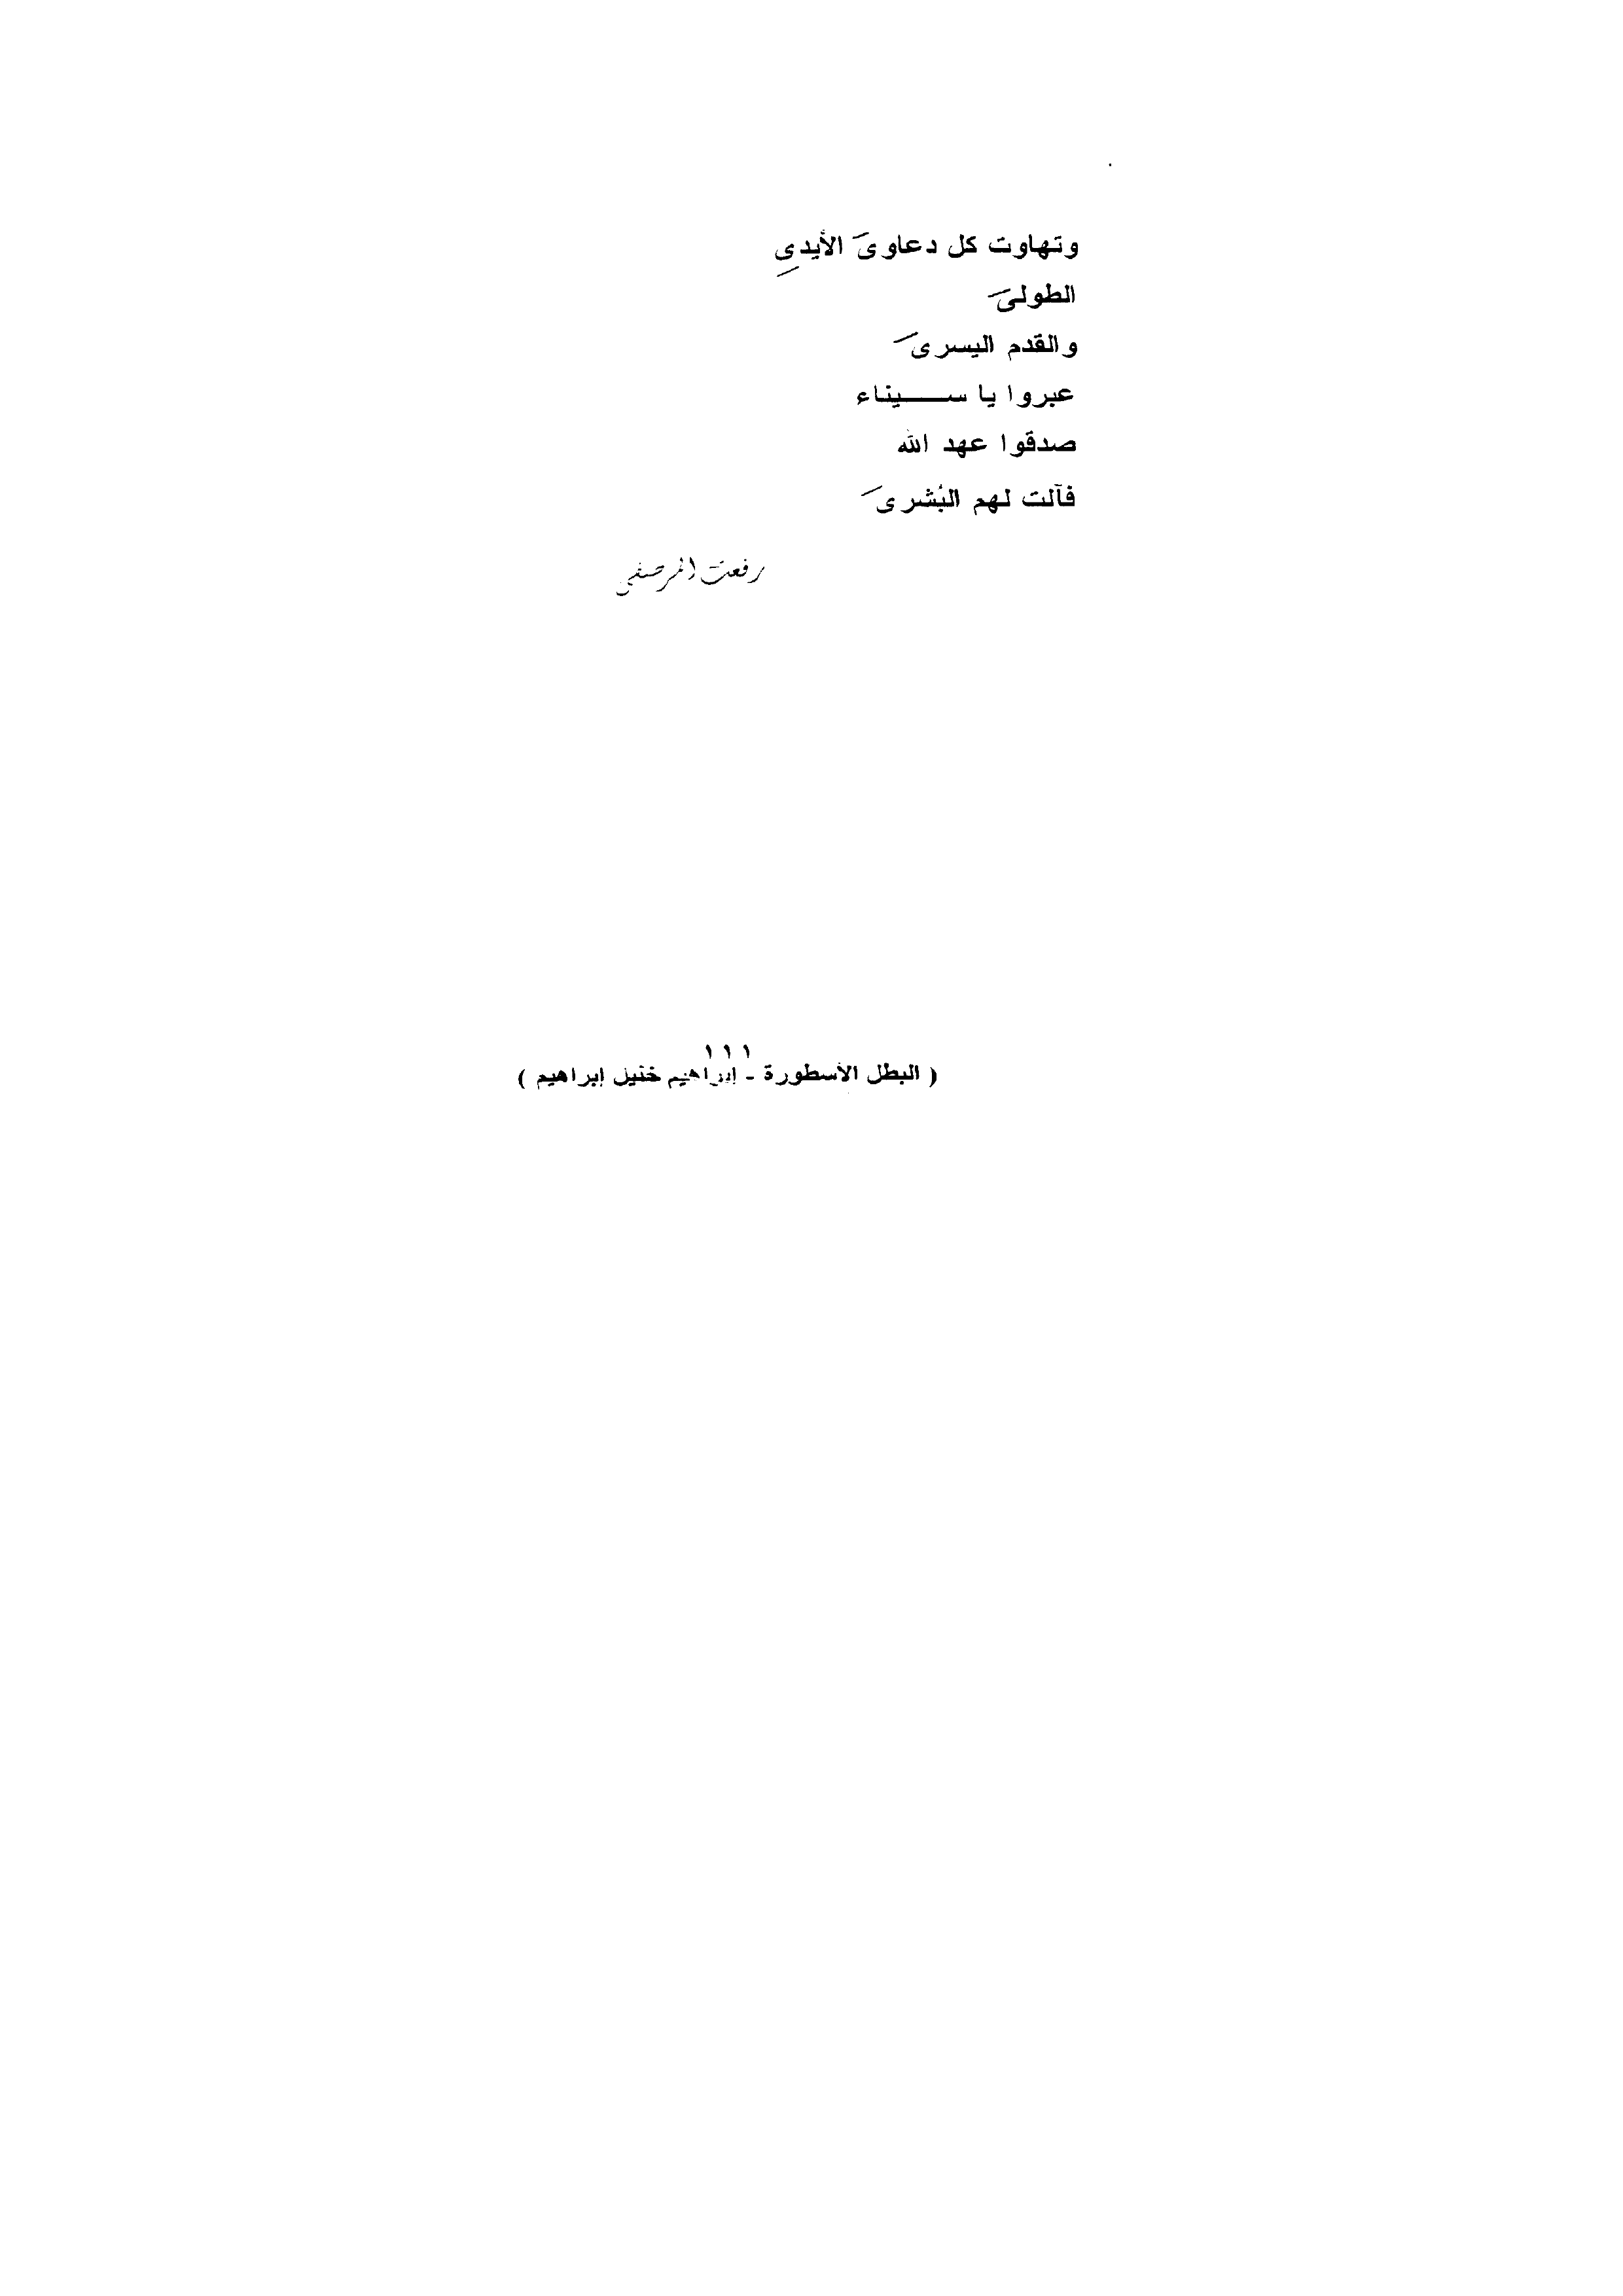 وتهاوت كل دعاوىَ الأيدىِ
الطولىَ
والقدم اليسرىَ
عبروا يا ســـــيناء
صدقوا عهد الله
فآلت لهم البُشرىَ
رفعت المرصفى
١١١
( البطل الأسطورة - إبراهيم خليل إبراهيم )